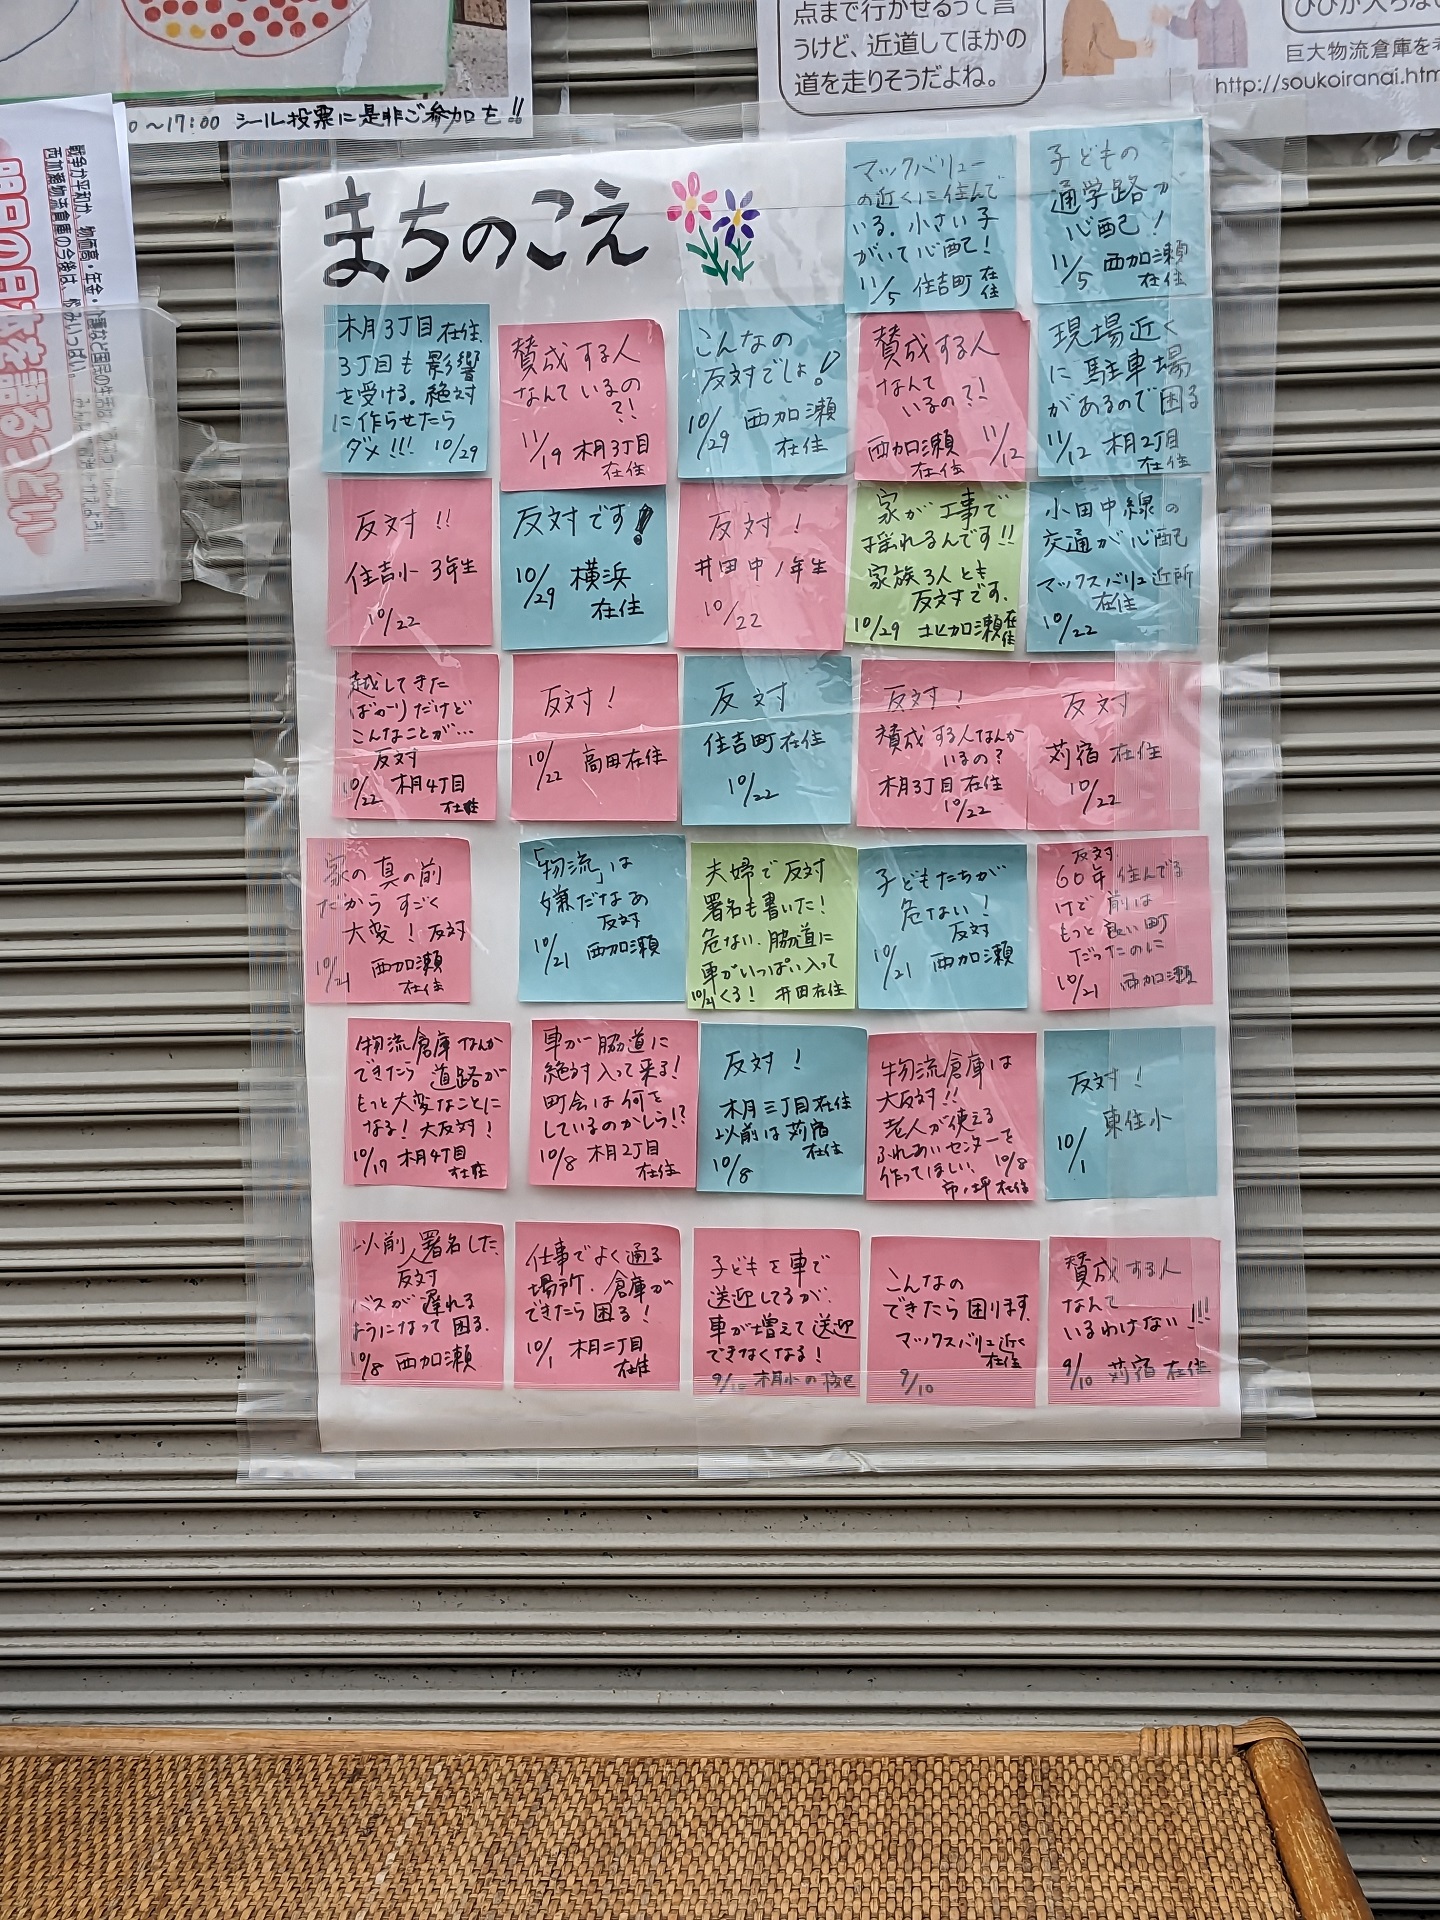 点まで行かせるって言
うけど、近道してほかの
道を走りそうだよね。
巨大物流倉庫を
http://soukoiranai.htm
0〜17:00 シール投票に是非ご参加を!!
戦争か平和か、物価高・年金・介護など国民の生活
西加瀬物流倉庫の今後は、
明日の日本を語るつどい
まちのこえ
マックスバリュー
の近くに住んで
いる。小さい子
がいて心配!
11/5 住吉町在住
子どもの
通学路が
心配!
11/5 西加瀬
在住
木月3丁目在住
3丁目も影響
を受ける。絶対
に作らせたら
ダメ!!! 10/29
賛成する人
なんているの
?!
11/19 木月3丁目
在住
こんなの
反対でしょ!
10/29 西加瀬
在住
賛成する人
なんて
いるの?!
西加瀬 11/12
在住
現場近く
に駐車場
があるので困る
11/12 木月2丁目
在住
反対!!
住吉小3年生
10/22
反対です!
10/29 横浜
在住
反対!
井田中1年生
10/22
家が工事で
揺れるんです!!
家族3人とも
反対です。
10/29 北加瀬在住
小田中線の
交通が心配
マックスバリュ近所
在住
10/22
越してきた
ばかりだけど
こんなことが…
反対
10/22 木月4丁目
在住
反対!
10/22 高田在住
反対
住吉町在住
10/22
反対!
賛成する人なんか
いるの?
木月3丁目在住
10/22
反対
苅宿在住
10/22
家の真の前
だからすごく
大変!反対
10/21 西加瀬
在住
「物流」は
嫌だなあ
反対
10/21 西加瀬
夫婦で反対
署名も書いた!
危ない、脇道に
車がいっぱい入って
10/21 くる! 井田在住
子どもたちが
危ない!
反対
10/21 西加瀬
反対
60年住んでる
けど前は
もっと良い町
だったのに
10/21 西加瀬
物流倉庫なんか
できたら道路が
もっと大変なことに
なる!大反対!
10/17 木月4丁目
在住
車が脇道に
絶対入って来る!
町会は何を
しているのかしら!?
10/8 木月2丁目
在住
反対!
木月三丁目在住
以前は苅宿
在住
10/8
物流倉庫は
大反対!!
老人が使える
ふれあいセンターを
作ってほしい。10/8
市ノ坪在住
反対!
東住小
10/1
以前署名した
反対
バスが遅れる
ようになって困る。
10/8 西加瀬
仕事でよく通る
場所、倉庫が
できたら困る!
10/1 木月二丁目
在住
子どもを車で
送迎してるが、
車が増えて送迎
できなくなる!
9/10 木月小の
こんなの
できたら困ります。
マックスバリュ近く
在住
9/10
賛成する人
なんて
いるわけない!!!
9/10 苅宿在住